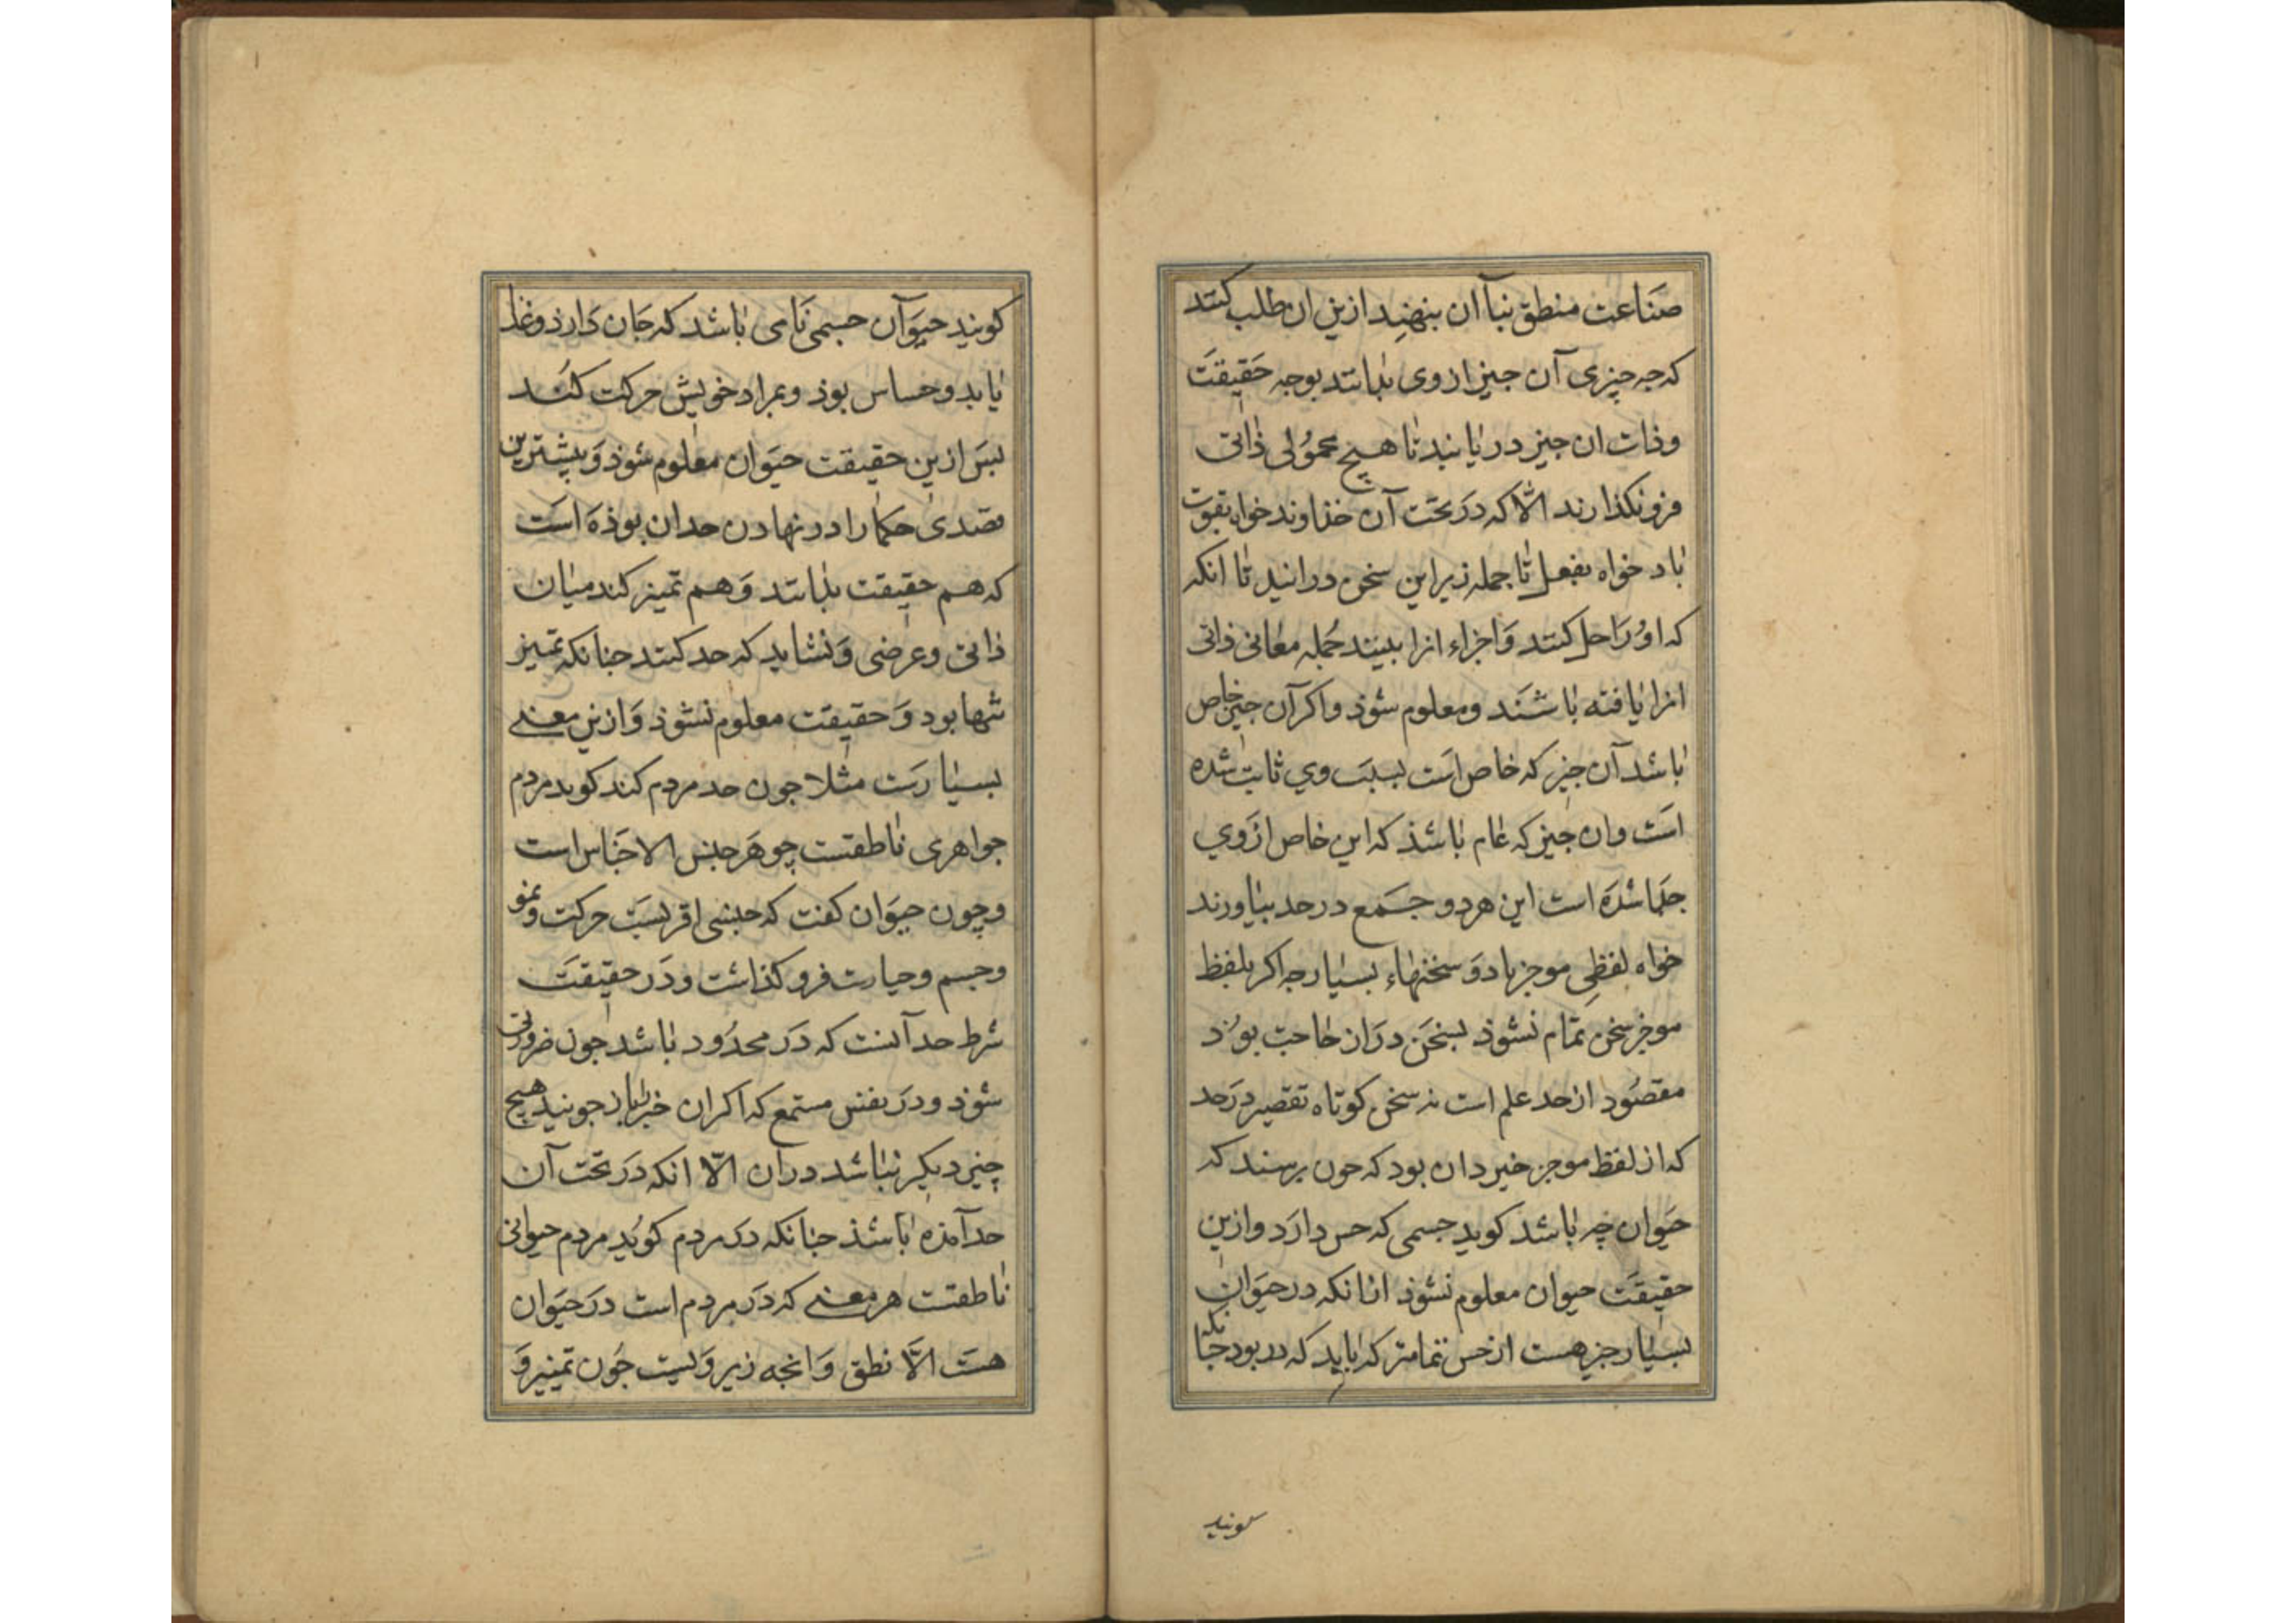 صناعت منطق بنآ ان بنهند ازین ان طلب کنند
که جه چیزی آن جیز از وی بدانند بوجه حقیقت
وذات ان جیز دریابند تا هیچ محمولی ذاتی
فرونکذارند الّا که در تحت آن خداوند خواه بقوت
باد خواه بفعل تا جمله زیر این سخن درانید تا انکه
که اورا حل کنند و اجزاء انرا ببینند جمله معانی ذاتی
انرا یافته باشند ومعلوم شوذ واکر آن جیز خاص
باشد آن جیز که خاص است بسبب وی ثابت شده
است وان جیز که عام باشذ که این خاص از وی
جدا شده است این هردو جمع درحد بیاورند
خواه لفظی موجز باد و سخنهاء بسیار جه اکر بلفظ
موجز سخن تمام نشوذ بسخن دران حاجت بوذ
مقصود از حد علم است نه سخن کوتاه تقصیر درحد
که از لفظ موجز خیزد ان بود که جون برسند که
حیوان چه باشد کوید جسمی که حس دارد وازین
حقیقت حیوان معلوم نشوذ ازانکه درحیوان
بسیار جیز هست از حس تمامتر که باید که در بود جنانکه
کویند
کویند حیوآن جسمی نامی باشد که جان دارذ وغذا
یابد وحساس بوذ وبمراد خویش حرکت کند
بس ازین حقیقت حیوان معلوم شوذ و بیشترین
قصدی حکما را در نهادن حد ان بوذه است
که هم حقیقت بدانند و هم تمیز کند میان
ذاتی وعرضی و نشاید که حد کنند جنانکه تمییز
تنها بود و حقیقت معلوم نشوذ وازین معنی
بسیارست مثلا جون حد مردم کند کوید مردم
جواهری ناطقست چو هر جنس الاجناس است
وچون حیوان کفت که جنسی اقربست حرکت ونمو
وجسم وحیات فروکذاشت ودر حقیقت
شرط حد آنست که در محدود باشد جون ضرورتی
شوذ ودر نفس مستمع که اکران خبر باز جویند هیچ
چیز دیکر نباشد دران الّا انکه در تحت آن
حد آمذه باشذ جنانکه در مردم کوید مردم حیوانی
ناطقست هر معنی که در مردم است در حیوان
هست الّا نطق و انجه زیر ویست جون تمییز و